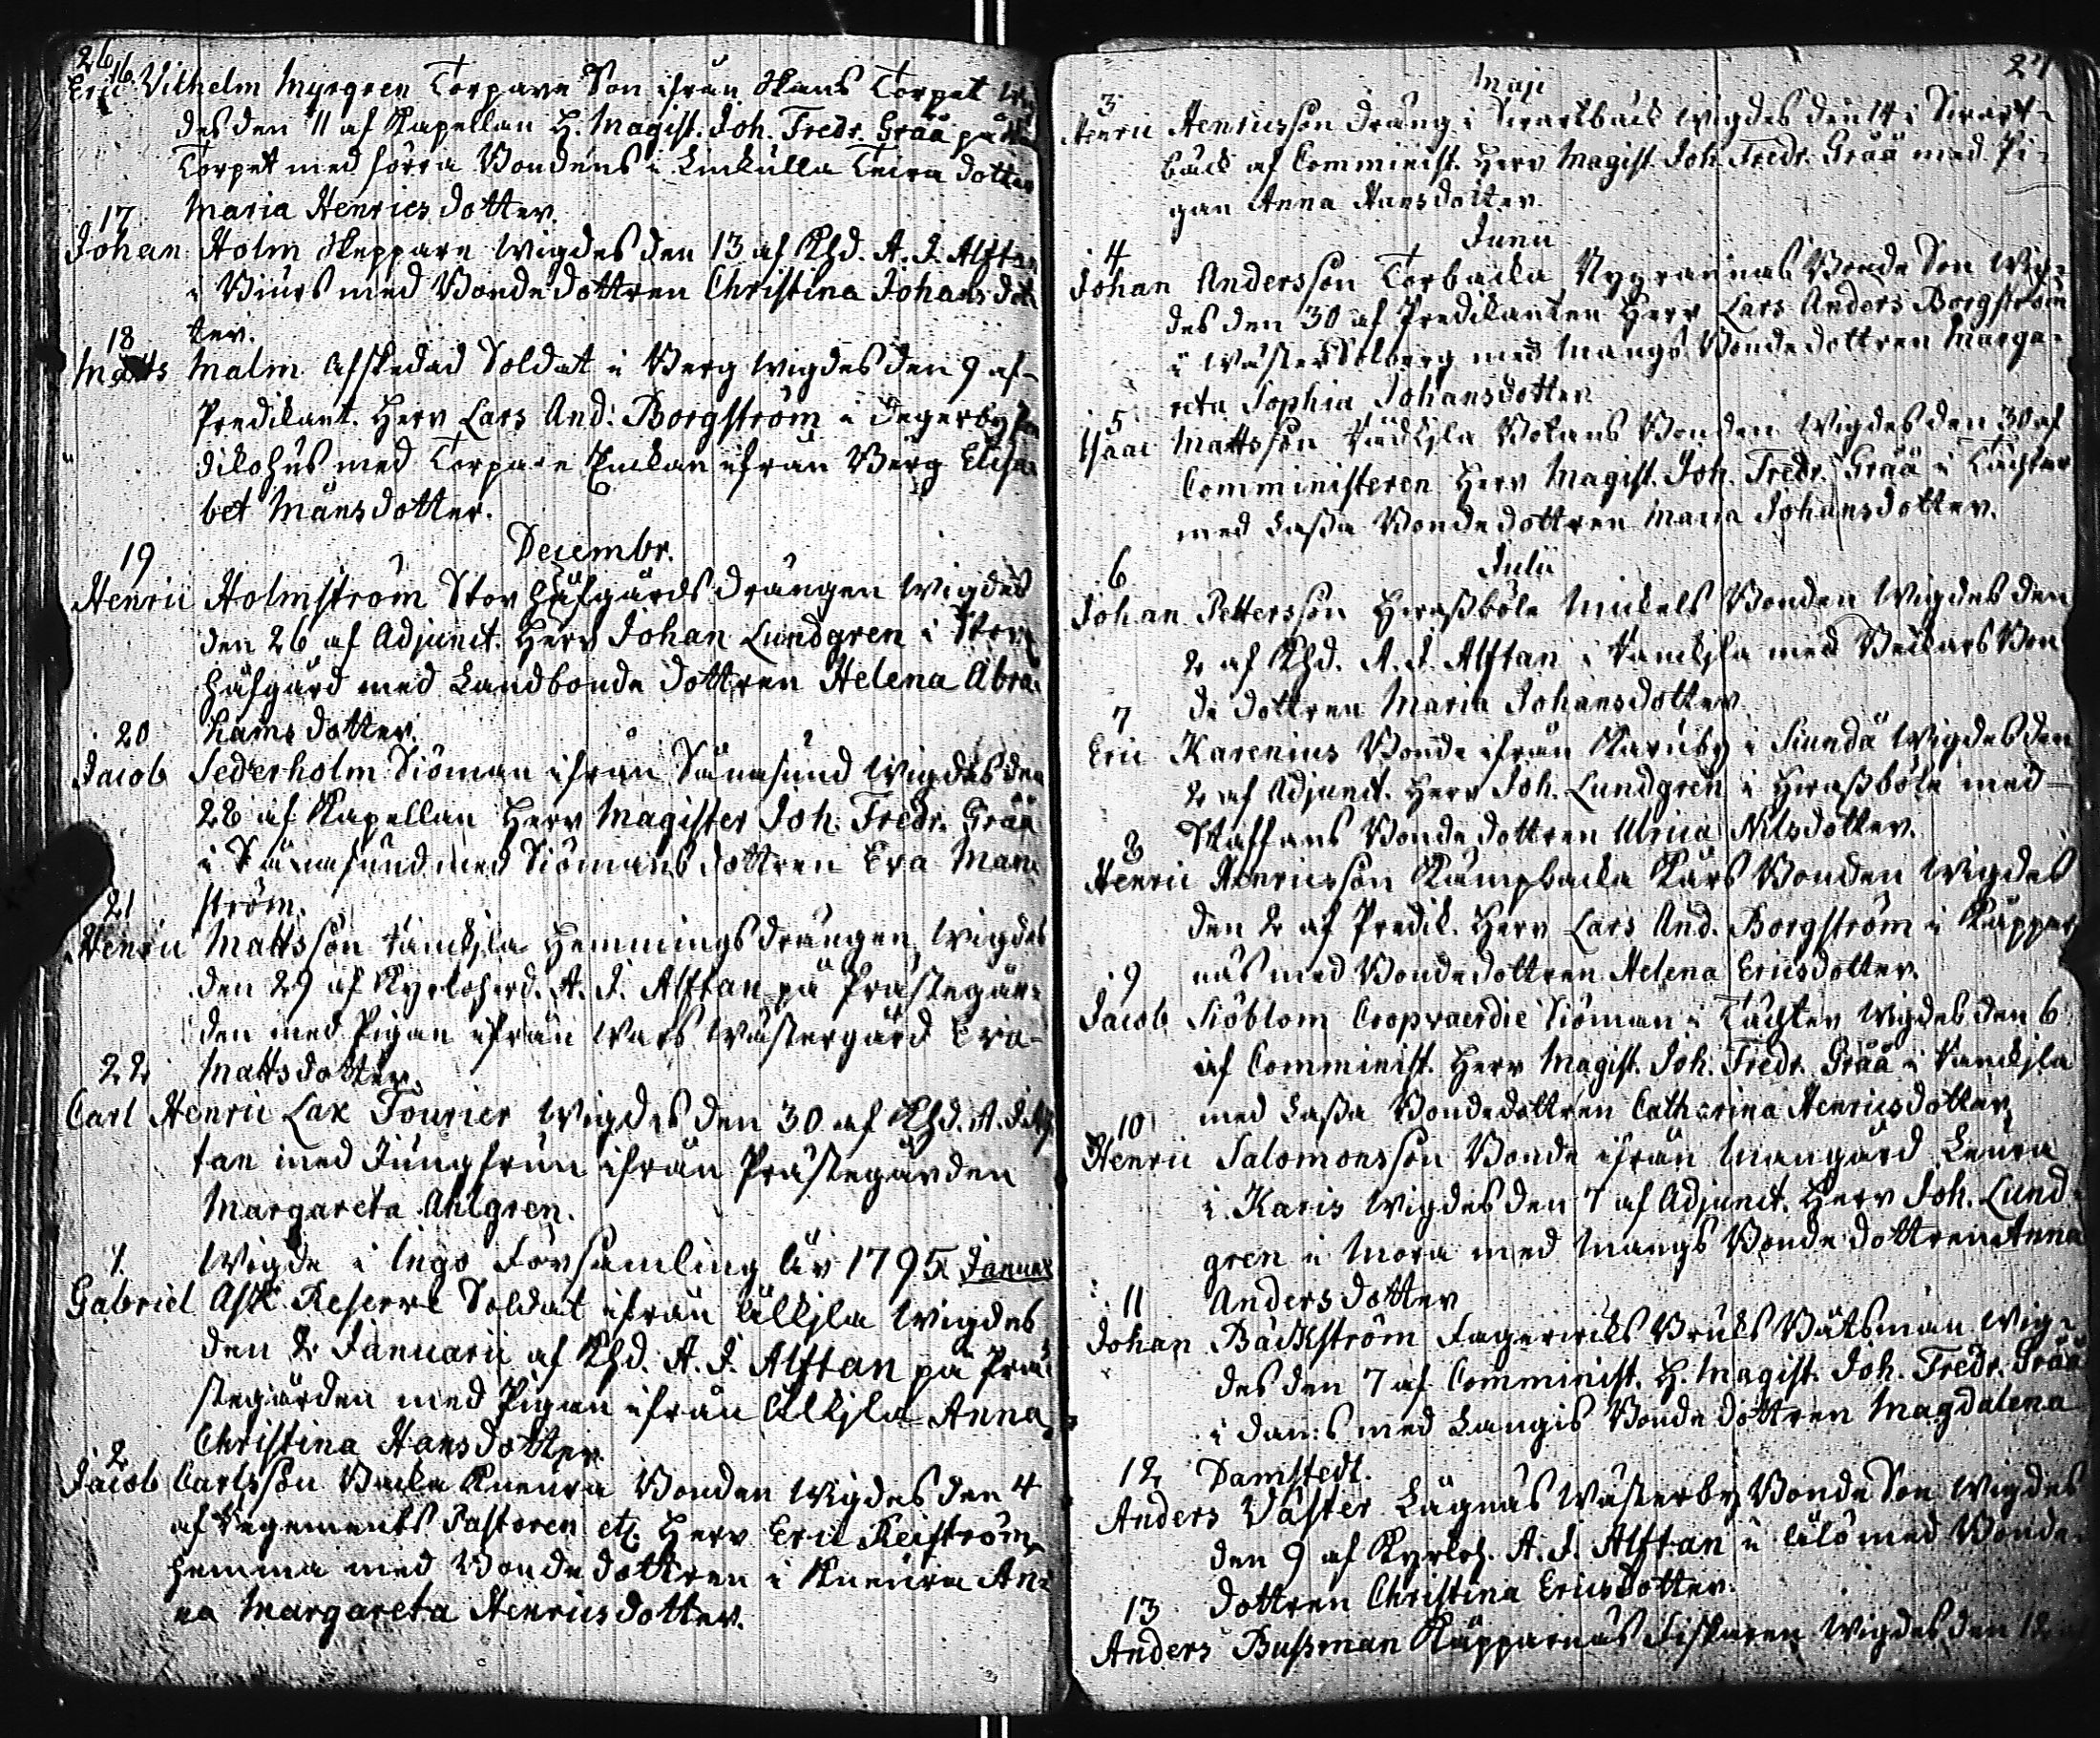 26
16
Eric Vilhelm Myrgren Torpare Son ifrån Skans Torpet Wig
des den 11 af Kapellan H. Magist. Joh. Fredr. Gråå på
Torpet med förra Bondens i Linkulla dotter
Maria Henrics dotter.
17
Johan Holm Skeppare Wigdes den 13 af Khd. A. J. Alftan
i med Bonde dottren Christina Johans dot
ter.
18
Matts Malm Afskedad Soldat i Berg Wigdes den 9 af
Predikant. Herr Lars And: Borgström i Degerby
med Torpare Enkan ifrån Berg Elisa
bet Månsdotter.
Decembr.
19
Henric Holmström Stor Håfgårds drängen Wigdes
den 26 af Adjunct. Herr Johan Lundgren i Stor
håfgård med Landbonde dottren Helena Abra
hams dotter.
20
Jacob Sederholm Siöman ifrån Wigdes den
28 af Kapellan Herr Magister Joh. Fredr. Gråå
i med Siömans dottren Eva Man
ström.
21
Henric Mattsson Hemmings drängen, Wigdes
den 29 af Kyrkoherd. A. J. Alftan på Prästegår
den med Pigan ifrån Wars Wästergård Eva
Mattsdotter.
22
Carl Henric Lax Fourier Wigdes den 30 af Khd. A. J. Alf
tan med Jungfrun ifrån Prästegården
Margareta Ahlgren.
Wigde i Ingo Församling år 1795. Januar
1.
Gabriel Ask Reserve Soldat ifrån Wigdes
den 2 Januarii af Khd. A. J. Alftan på Prä
stegården med Pigan ifrån Anna
Christina Hansdotter
2
Jacob Carlsson Backa Bonden Wigdes den 4
af Regements Pastoren etc. Herr Eric Reiström
hemma med Bonde dottren i An
na Margareta Henricsdotter.
27
Maji
3
Henric Henricsson dräng i Swartbäck Wigdes den 14 i Swart
bäck af Comminist. Herr Magist. Joh. Fredr. Gråå med Pi
gan Anna Hansdotter.
Junii
4
Johan Andersson Torbacka Bonde Son Wig
des den 30 af Predikanten Herr Lars Anders Borgström
i Wäster Solberg med Mangs Bonde dottren Marga
reta Sophia Johansdotter
5
Isaac Mattsson Bonden Wigdes den 30 af
Comministeren Herr Magist. Joh. Fredr. Gråå i Täckter
med Lassa Bonde dottren Maria Johansdotter.
Julii
6
Johan Pettersson Mickels Bonden Wigdes den
2 af Khd. A. J. Alftan i med Bon
de dottren Maria Johansdotter
7
Eric Karenius Bonde ifrån Karuby i Siundå Wigdes den
2 af Adjunct. Herr Joh. Lundgren i med
Staffans Bonde dottren Ulrica Nilsdotter.
8
Henric Henricsson Kämpbacka Kårs Bonden Wigdes
den 2 af Predik. Herr Lars And. Borgström i Kåppar
näs med Bondedottren Helena Ericsdotter.
9
Jacob Siöblom Coopvaerdie Siöman i Täckter Wigdes den 6
af Comminist. Herr Magist. Joh. Fredr. Gråå i
med Lassa Bondedottren Catharina Henricsdotter
10
Henric Salomonsson Bonde ifrån Mangård
i Karis Wigdes den 7 af Adjunct. Herr Joh. Lund
gren i Mora med Mangs Bonde dottren Anna
Andersdotter
11
Johan Bäckström Fagerwiks Bruks Båtsman Wig
des den 7 af Comminist. H. Magist. Joh. Fredr. Gråå
i med Langis Bonde dottren Magdalena
Damstedt.
12
Anders Väster Lågnäs Wästerby Bonde Son Wigdes
den 9 af Kyrkoh. A. J. Alftan i med Bonde
dottren Christina Ericsdotter.
13
Anders Bussman Kåpparnäs Fiskaren Wigdes den 12